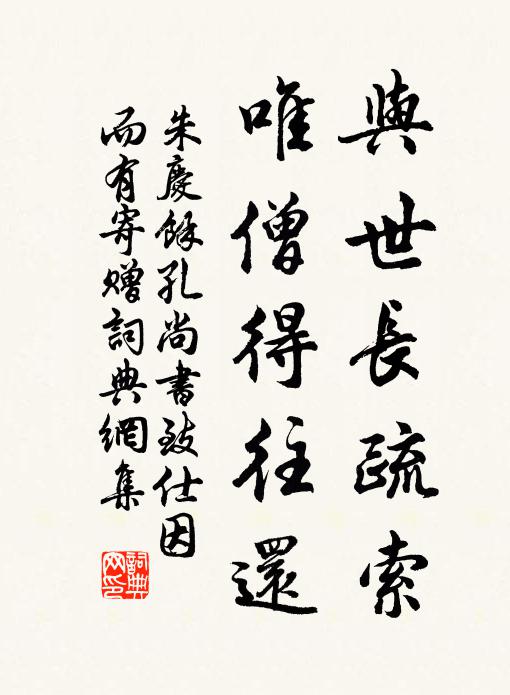 與世長疏索
唯僧得往還
朱慶餘孔尚書致仕因
而有寄贈詞典網集
詞典網印